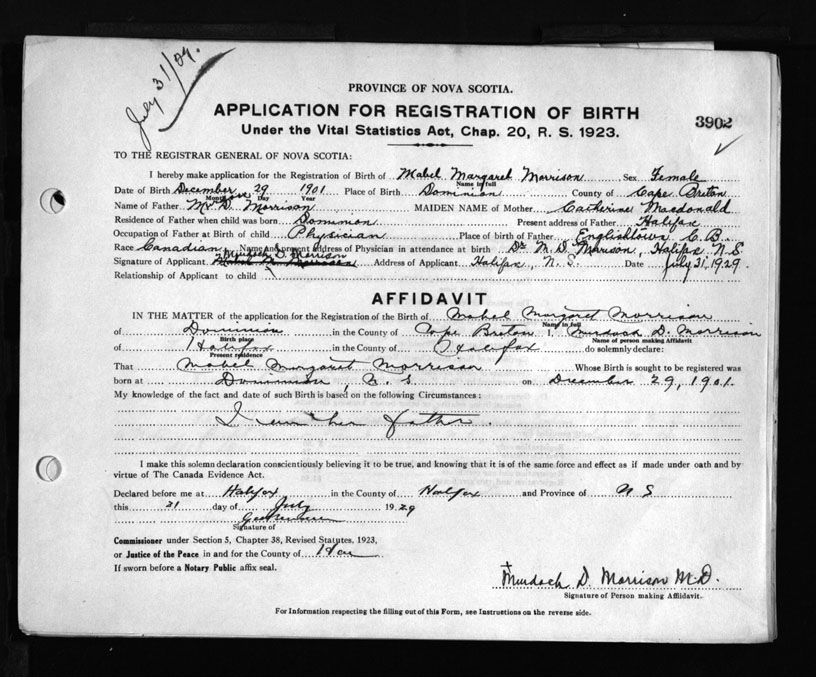 July 31/29.
PROVINCE OF NOVA SCOTIA.
APPLICATION FOR REGISTRATION OF BIRTH
3902
Under the Vital Statistics Act, Chap. 20, R. S. 1923.
TO THE REGISTRAR GENERAL OF NOVA SCOTIA:
I hereby make application for the Registration of Birth of Mabel Margaret Morrison Sex Female
Name in full
Date of Birth December 29 1901 Place of Birth Dominion County of Cape Breton
Month Day Year
Name of Father M. D. Morrison MAIDEN NAME of Mother Catherine Macdonald
Residence of Father when child was born Dominion Present address of Father Halifax
Occupation of Father at Birth of child Physician Place of birth of Father Englishtown C. B.
Race Canadian Name and present address of Physician in attendance at birth Dr M. D. Morrison, Halifax N. S.
Murdoch D. Morrison
Signature of Applicant Address of Applicant Halifax, N. S. Date July 31, 1929.
Relationship of Applicant to child
AFFIDAVIT
IN THE MATTER of the application for the Registration of Birth of Mabel Margaret Morrison
Name in full
of Dominion in the County of Cape Breton I, Murdoch D. Morrison
Birth place Name of person making Affidavit
of Halifax in the County of Halifax do solemnly declare:
Present residence
That Mabel Margaret Morrison Whose Birth is sought to be registered was
born at Dominion, N. S. on December 29, 1901.
My knowledge of the fact and date of such Birth is based on the following Circumstances:
I am her father.
I make this solemn declaration conscientiously believing it to be true, and knowing that it is of the same force and effect as if made under oath and by
virtue of The Canada Evidence Act.
Declared before me at Halifax in the County of Halifax and Province of N S
this 31 day of July 1929
Signature of
Commissioner under Section 5, Chapter 38, Revised Statutes, 1923,
or Justice of the Peace in and for the County of
If sworn before a Notary Public affix seal.
Murdoch D. Morrison M.D.
Signature of Person making Affidavit.
For Information respecting the filling out of this Form, see Instructions on the reverse side.